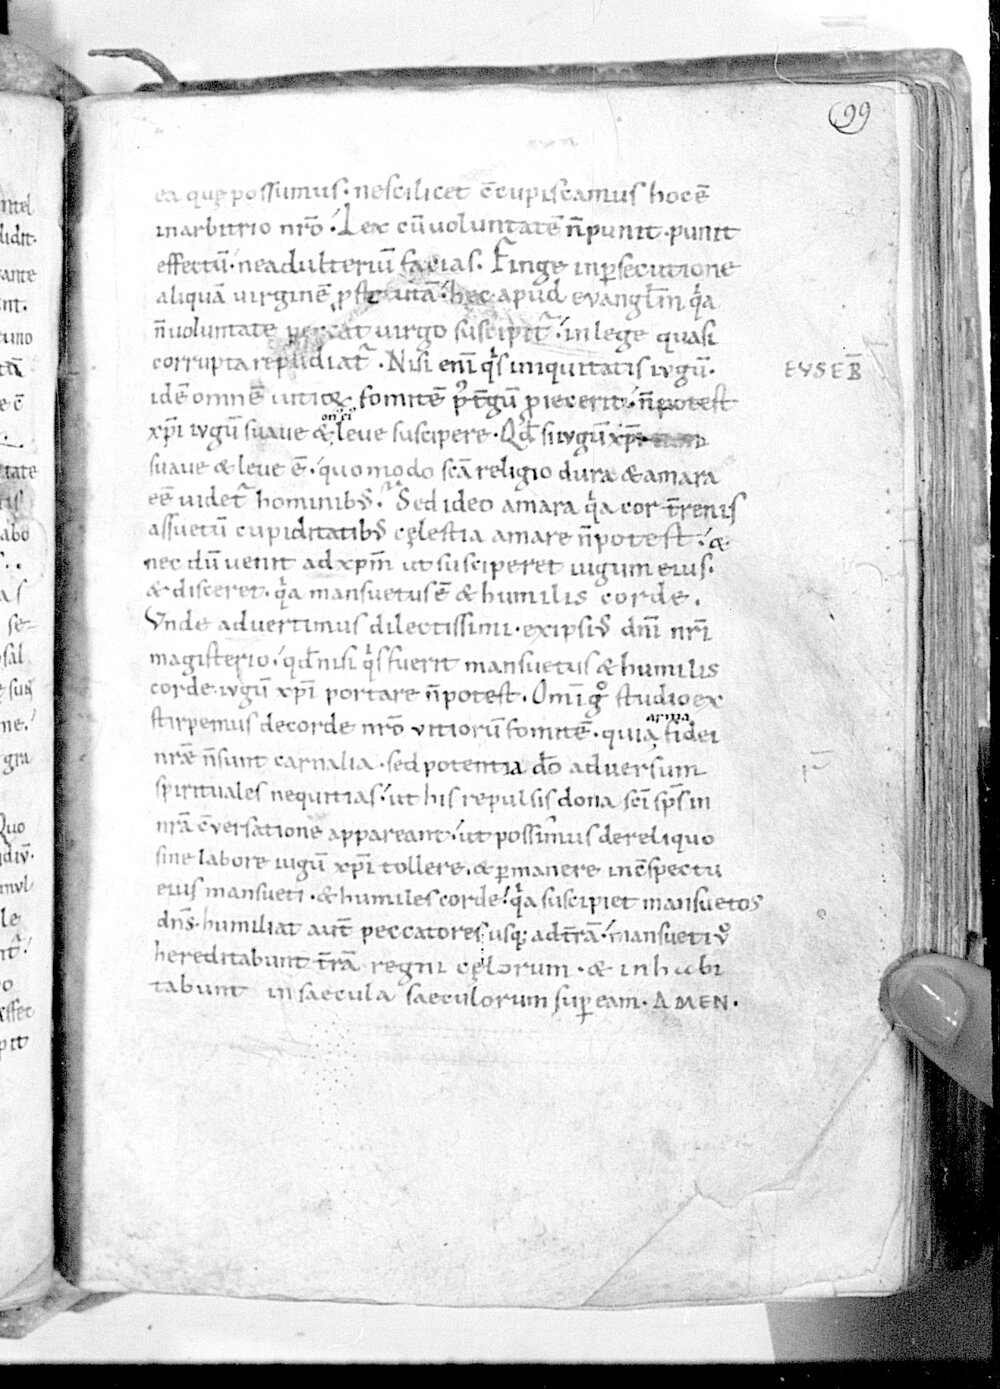 99
ea quę possumus· nescilicet c̄cupiscamus hoc ē
inarbitrio nr̄o· Lex cū uoluntatē n̄ punit· punit
effectū· neadulteriū facias. Finge inp̱secutione
aliquā virginē ꝓst uitā· hęc apud evangl̄m q̇a
n̄ uoluntate peccat virgo suscipit᷑· in lege quasi
corrupta repudiat᷑· Nisi enī q̇s iniquitatis iugū·
idē omnē uitioꝝ fomitē p̄ iecerit· n̄ potest
xp̄i iugū suaue & leue suscipere· Qd̄ si iugū xp̄i
on' ei'
suaue & leue ē· quomodo sc̄a religio dura & amara
eē videt᷑ hominibꝰ· Sed ideo amara q̇a cor t̄renis
assuetū cupiditatibꝰ cęlestia amare n̄ potest· &
nec dū uenit ad xp̄m ut susciperet iugum eius·
& disceret· q̇a mansuetus ē & humilis corde.
Vnde advertimus dilectissimi· exipsiꝰ dn̄i nr̄i
magisterio· qd̄ nisi q̇s fuerit mansuetus & humilis
corde iugū xp̄i portare n̄ potest. Omī g° studio ex
stirpemus decorde nr̄o vitiorū fomitē· quia fidei
arma
nr̄æ n̄ sunt carnalia· sed potentia dō adversum
spirituales nequitias· ut his repulsis dona sc̄i sp̄s in
nr̄a c̄versatione appareant· ut possimus dereliquo
sine labore iugū xp̄i tollere, & p̱manere in c̄spectu
eius mansueti· & humiles corde· q̇a suscipiet mansuetos
dn̄s· humiliat aut̄ peccatores usq; ad t̄rā· mansueti ṽ
hereditabunt t̄rā regni cęlorum· & inhabi
tabunt in saecula saeculorum sup̱ eam· AMEN·
EVSEB̄